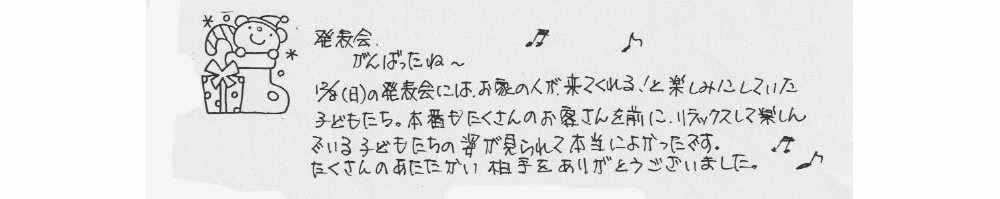 発表会
がんばったね~
12/8(日)の発表会には、お家の人が、来てくれる!と楽しみにしていた
子どもたち。本番もたくさんのお客さんを前に、リラックスして楽しん
でいる子どもたちの姿が見られて本当によかったです。
たくさんのあたたかい拍手をありがとうございました。